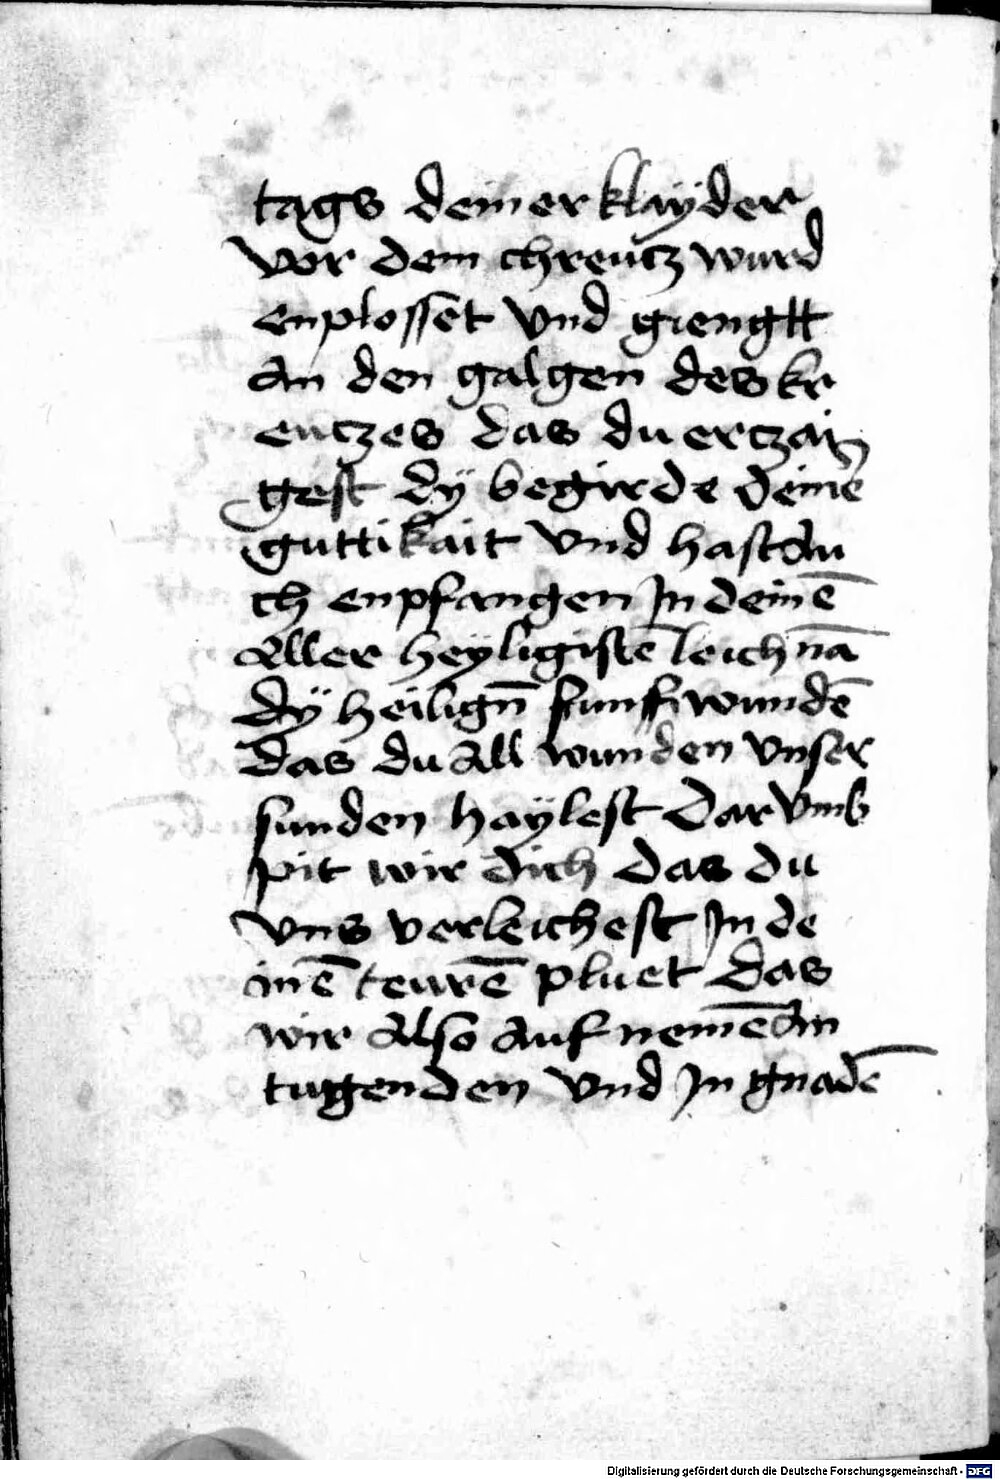 tags deiner klayder
vor dem chreutz wurd
enplosset vnd giengtt
an den galgen des kr
eutzes das du ertzai
gest dÿ begirde deinē
guttikait vnd hast au
ch enpfangen In deinē
aller heyligistē leichnā
dÿ heiligñ funff wundē
das du all wunden vnser
sunden haÿlest Dar vmb
pit wir dich das du
vns verleichest In de
inē teurē pluet das
wir also auf nemē an
tugenden vnd In gnadē
Digitalisierung gefördert durch die Deutsche Forschungsgemeinschaft - DFG